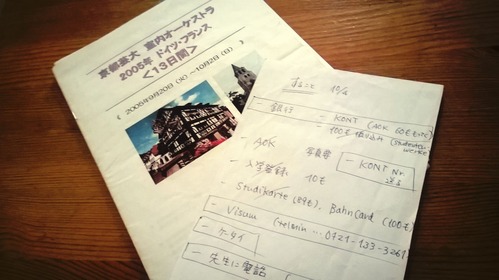 京都芸大 室内オーケストラ
2005年 ドイツ・フランス
<13日間>
< 2005年9月20日(火)~10月2日(日)>
すること 10/4
- 銀行
- KONT (AOK 60€もって)
100€ 振り込み (Studentenwerke)
- AOK 写真帯
- 入学登録 10€
- KONT Nr. 送る
- Studikarte (89€), BahnCard (100€)
- Visum (Termin ... 0721-133-3261
- ケータイ
- 先生に電話